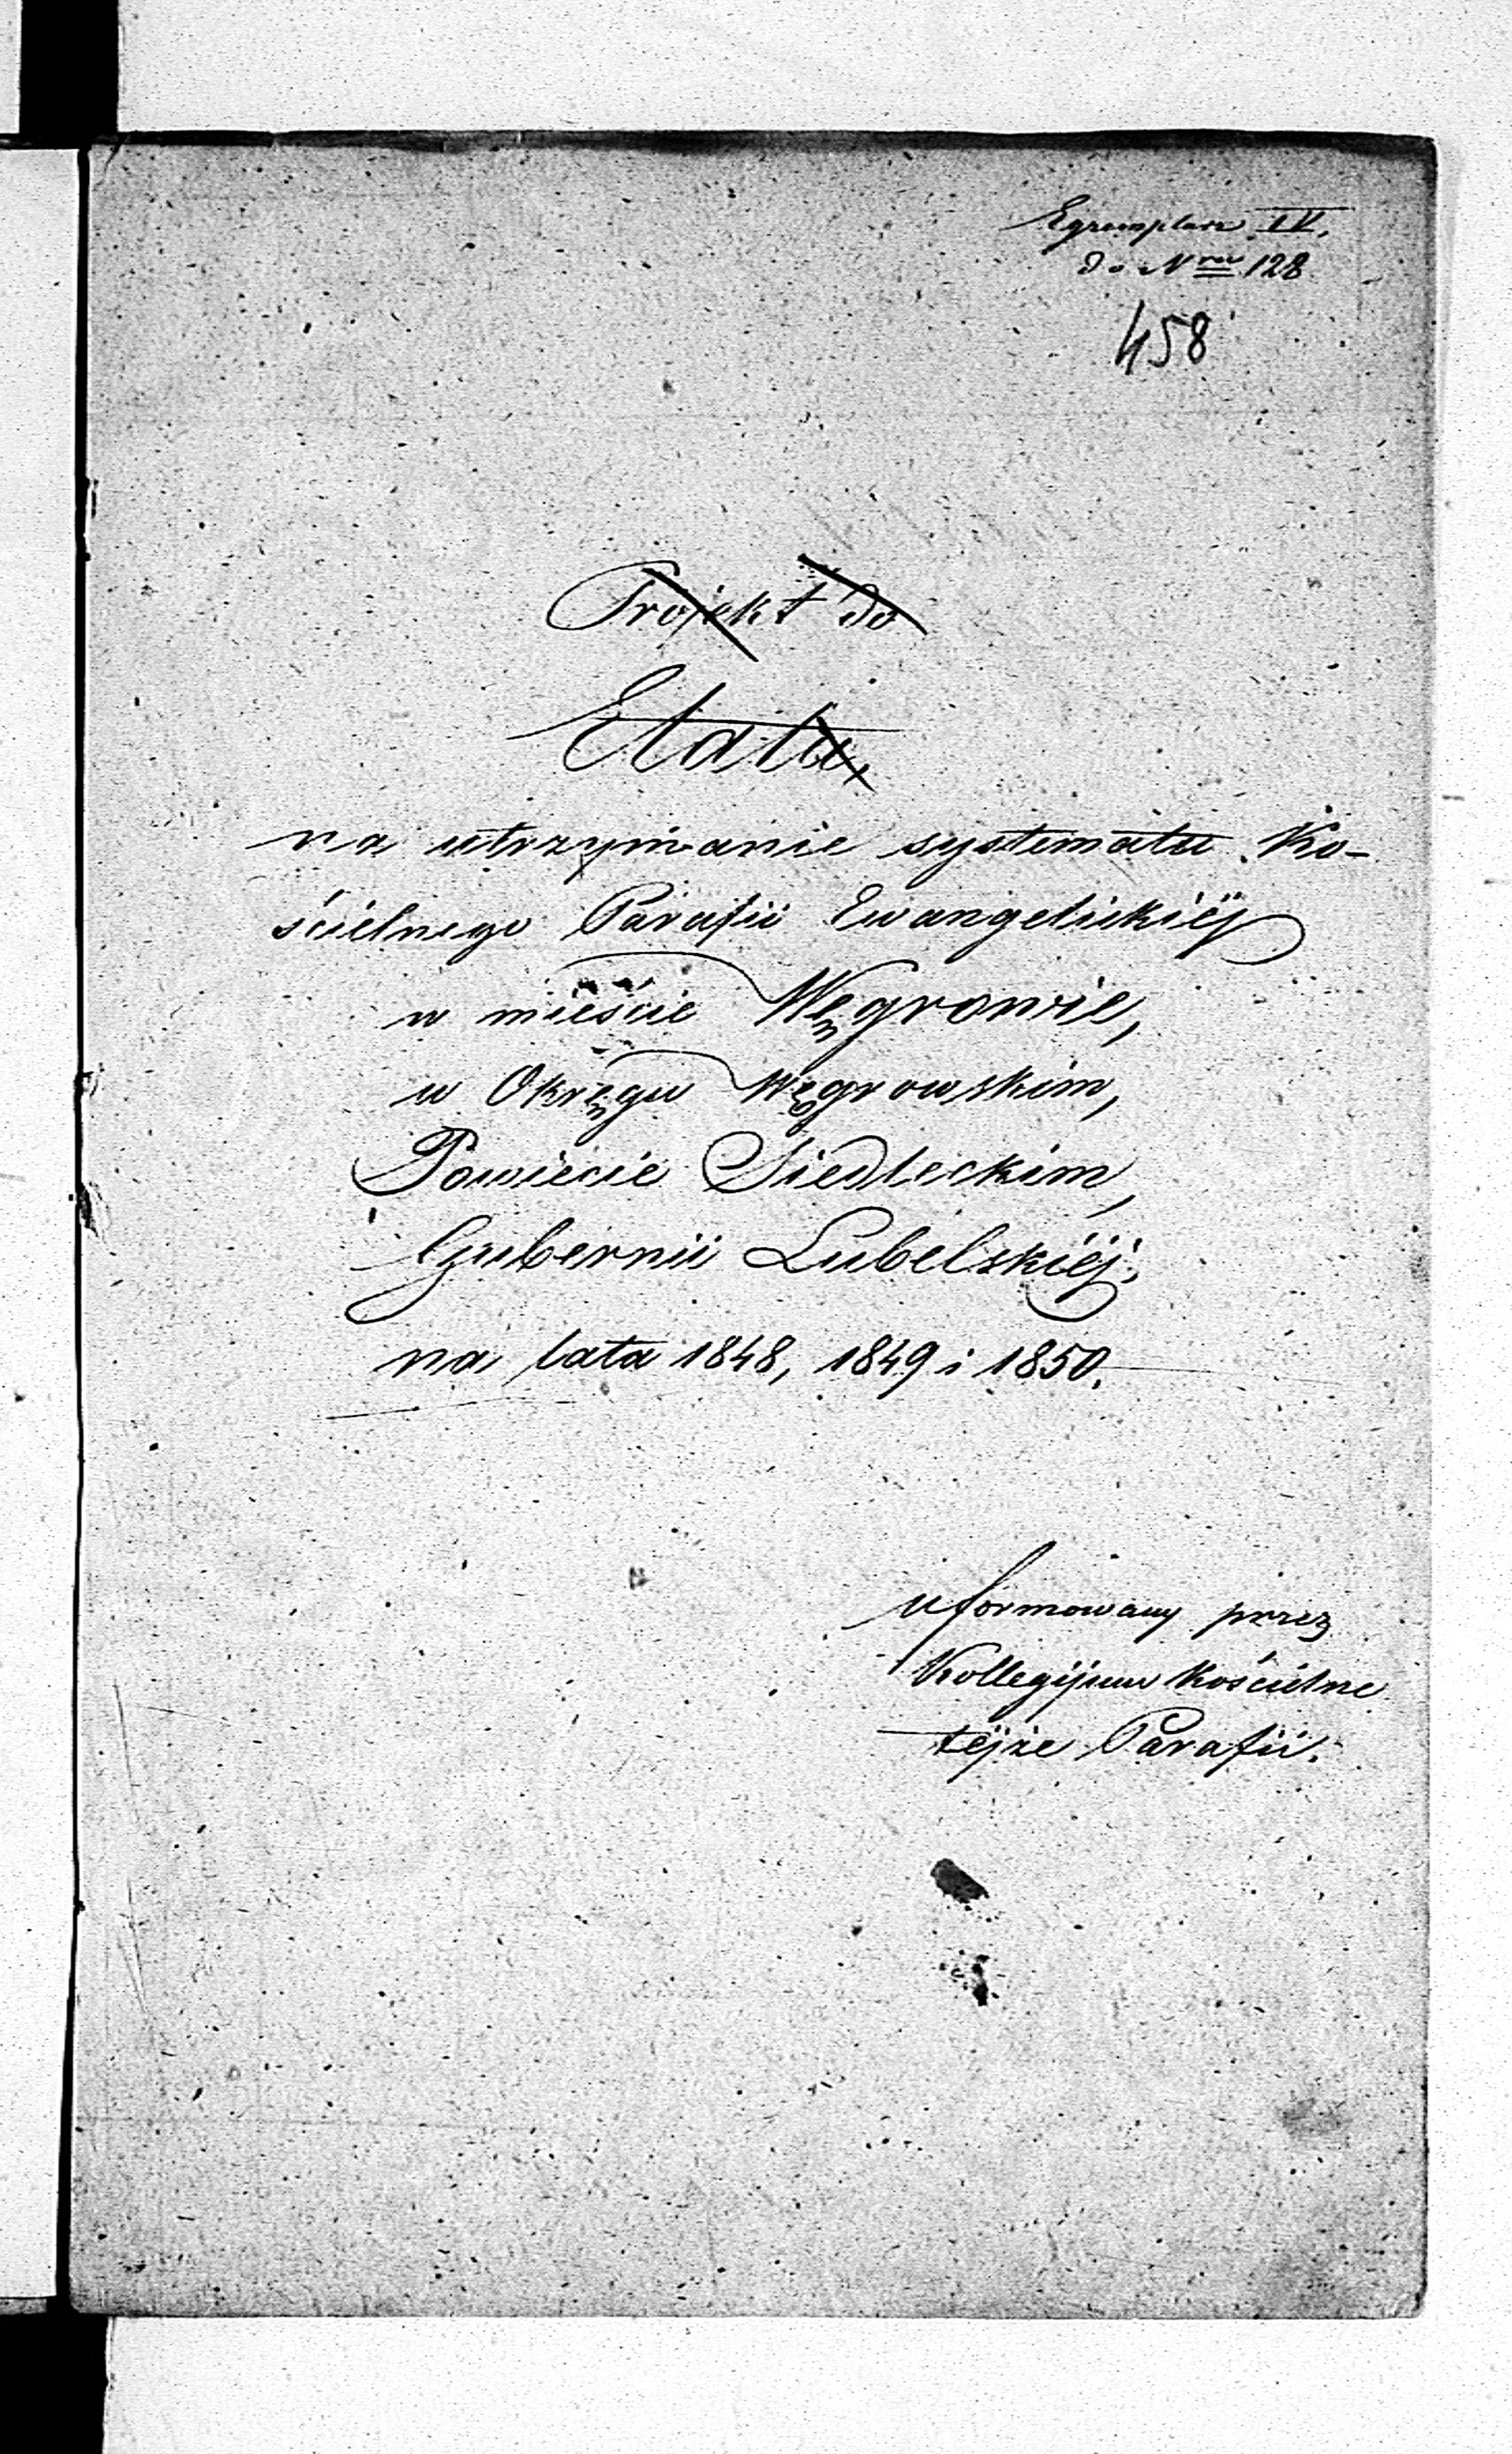 Egzemplarz IV.
do Nru 128
458
Projekt do
Etatu,
na utrzymanie systematu Ko-
ścielnego Parafii Ewangelickiéj
w mieście Węgrowie,
w Okręgu Węgrowskim,
Powiecie Siedleckim,
Gubernii Lubelskiéj,
na lata 1848, 1849 i 1850.
uformowany przez
Kollegijum Kościelne
téjże Parafii.